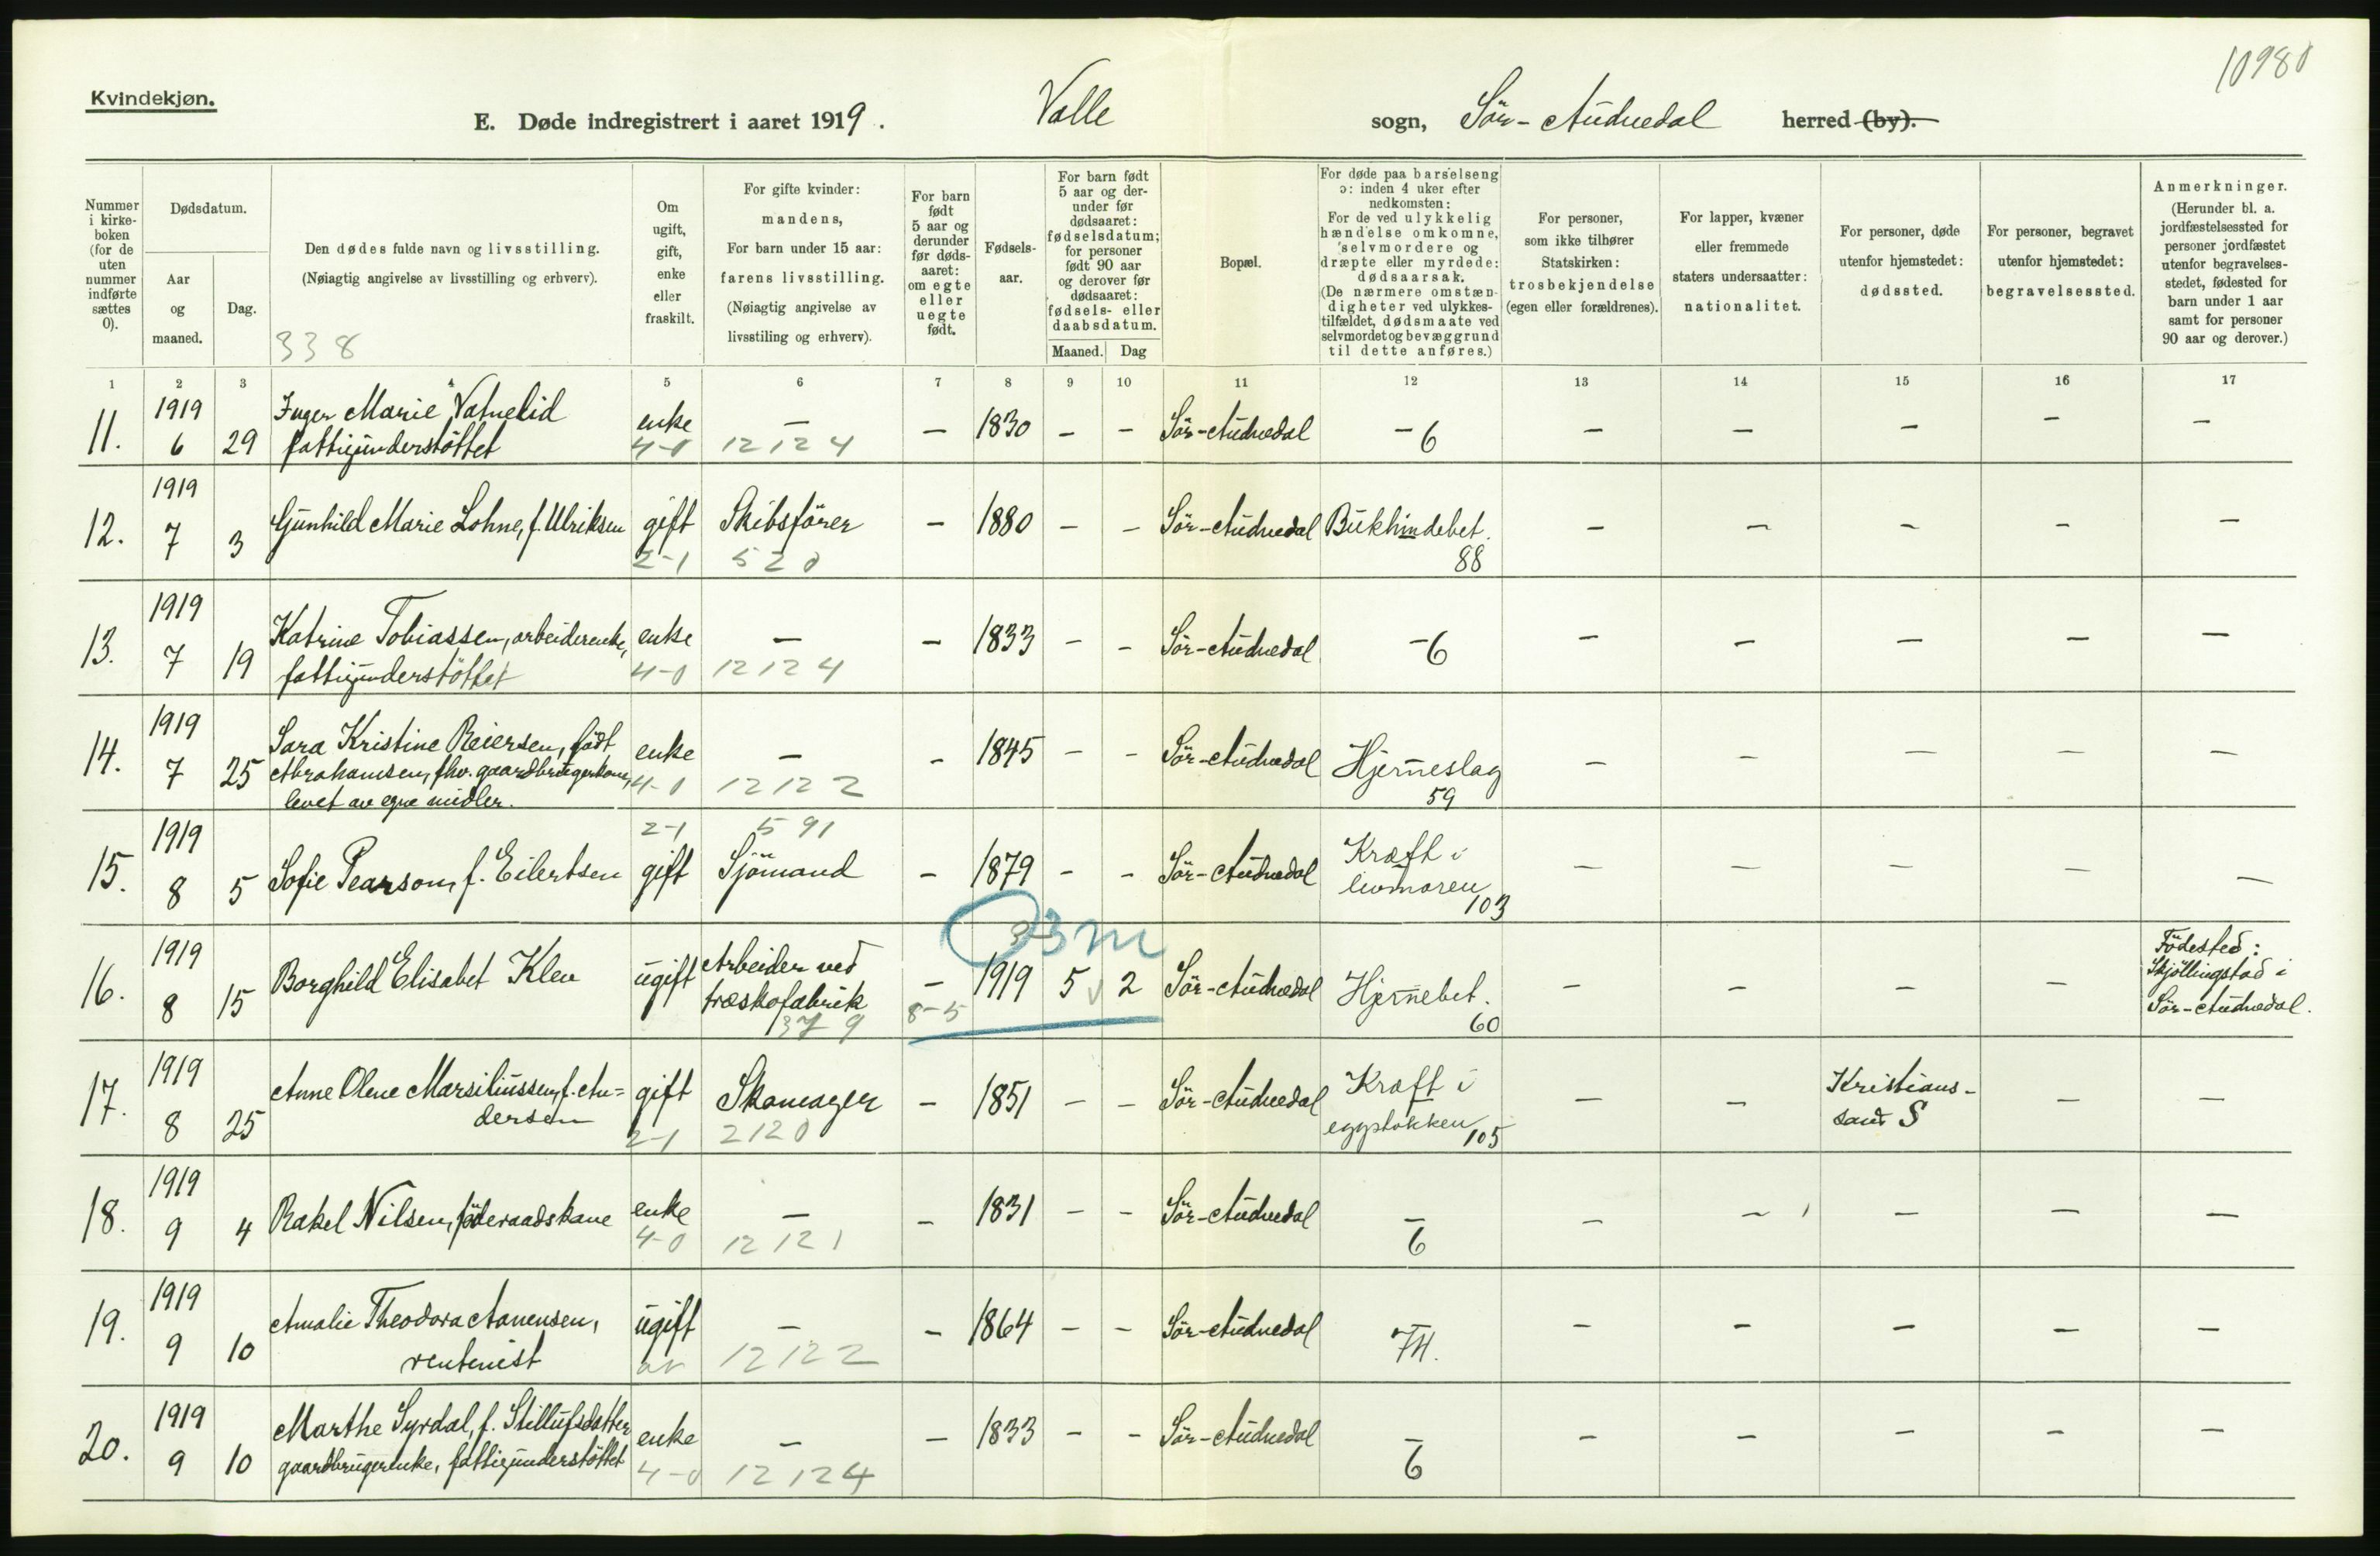 10980
Kvindekjøn.
E. Døde indregistrert i aaret 1919. Valle sogn, Sör-Audnedal herred (by).
Nummer i kirke-boken (for de uten nummer indførte sættes 0).
Dødsdatum.
Aar og maaned.
Dag.
Den dødes fulde navn og livsstilling.
(Nøiagtig angivelse av livsstilling og erhverv).
338
Om ugift, gift, enke eller fraskilt.
For gifte kvinder: mandens,
For barn under 15 aar: farens livsstilling.
(Nøiagtig angivelse av livsstiling og erhverv).
For barn født 5 aar og derunder før døds-aaret: om egte eller uegte født.
Fødsels-aar.
For barn født 5 aar og der-under før dødsaaret: fødselsdatum; for personer født 90 aar og derover før dødsaaret: fødsels- eller daabsdatum.
Maaned. Dag
Bopæl.
For døde paa barselseng ɔ: inden 4 uker efter nedkomsten:
For de ved ulykkelig hændelse omkomne, selvmordere og dræpte eller myrdede: dødsaarsak.
(De nærmere omstæn-digheter ved ulykkes-tilfældet, dødsmaate ved selvmordet og bevæggrund til dette anføres.)
For personer, som ikke tilhører Statskirken: trosbekjendelse (egen eller forældrenes).
For lapper, kvæner eller fremmede staters undersaatter: nationalitet.
For personer, døde utenfor hjemstedet: dødssted.
For personer, begravet utenfor hjemstedet: begravelsessted.
Anmerkninger.
(Herunder bl. a. jordfæstelsessted for personer jordfæstet utenfor begravelses-stedet, fødested for barn under 1 aar samt for personer 90 aar og derover.)
1 2 3 4 5 6 7 8 9 10 11 12 13 14 15 16 17
11. 1919 6 29 Inger Marie Vatnelid fattigunderstöttet enke 4-0 – 12 12 4 – 1830 – – Sör-Audnedal – 6 – – – – –
12. 1919 7 3 Gunhild Marie Lohne, f. Ulriksen gift 2-1 Skibsförer 5 2 0 – 1880 – – Sör-Audnedal Bukhindebet. 88 – – – – –
13. 1919 7 19 Katrine Tobiassen, arbeiderenke, fattigunderstöttet enke 4-0 – 12 12 4 – 1833 – – Sör-Audnedal – 6 – – – – –
14. 1919 7 25 Sara Kristine Reiersen, födt Abrahamsen, fhv. gaardbrugerkone, levet av egne midler. enke 4-0 – 12 12 2 – 1845 – – Sör-Audnedal Hjerneslag 59 – – – – –
15. 1919 8 5 Sofie Pearson, f. Eilertsen 2-1 gift 5 91 Sjömand – 1879 – – Sör-Audnedal Kræft i livmoren 103 – – – – –
16. 1919 8 15 Borghild Elisabet Klev ugift Arbeider ved træskofabrik 37 9 – 8-5 3m 1919 5 2 Sör-Audnedal Hjernebet. 60 – – – – Födested: Skjöllingstad i Sör-Audnedal.
17. 1919 8 25 Anne Olene Marsiliussen, f. An=dersen gift 2-1 Skomager 2 12 0 – 1851 – – Sör-Audnedal Kræft i eggstokken 105 – – Kristians-sand S – –
18. 1919 9 4 Rakel Nilsen, föderaadskone enke 4-0 – 12 12 1 – 1831 – – Sör-Audnedal – 6 – – – – –
19. 1919 9 10 Amalie Theodora Aanensen, rentenist ugift – 12 12 2 – 1864 – – Sör-Audnedal – 74. – – – – –
20. 1919 9 10 Marthe Syrdal, f. Stillufsdatter gaardbrugerenke, fattigunderstöttet enke 4-0 – 12 12 4 – 1833 – – Sör-Audnedal – 6 – – – – –